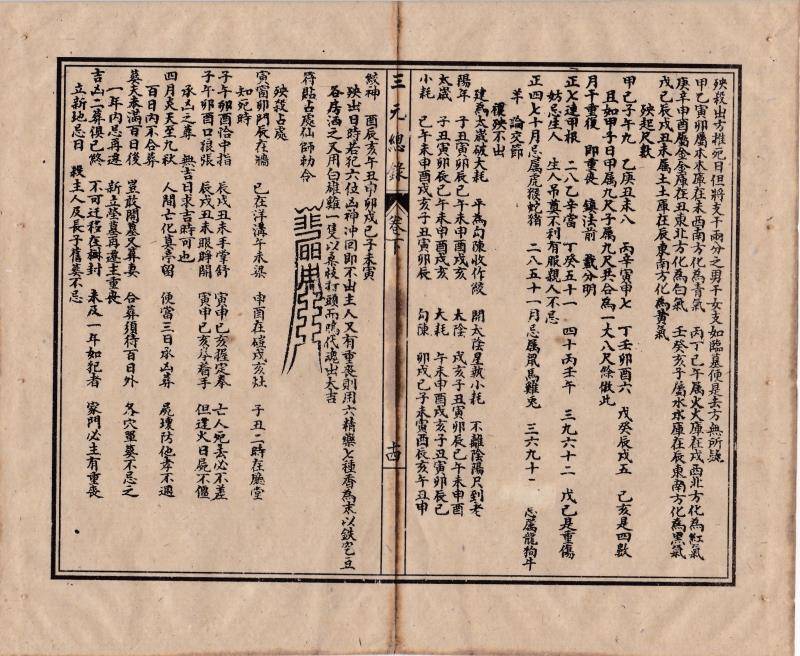 殃殺出方推死日但將支干兩分之男干女支如臨墓便是去方無所疑
甲乙寅卯屬木木庫在未西南方化為青氣　丙丁巳午屬火火庫在戌西北方化為紅氣
庚辛申酉屬金金庫在丑東北方化為白氣　壬癸亥子屬水水庫在辰東南方化為黑氣
戊己辰戌丑未屬土土庫在辰東南方化為黃氣
殃起尺數
甲己子午九　乙庚丑未八　丙辛寅申七　丁壬卯酉六　戊癸辰戌五　己亥是四數
且如甲子日甲屬九尺子屬九尺共合為一丈八尺餘倣此
月干重復　即重喪　鎮法前　載分明
正七連甲根　二八乙辛當　丁癸五十一　四十丙壬午　三九六十二　戊己是重傷
妨忌生人　生人吊尊不利有服親人不忌
正四七十月忌属虎猴蛇猪　二八五十一月忌属鼠馬雞兎　三六九十二　忌属龍狗牛
羊　論交節
穰殃不出
建為太歲破大耗　平為勾陳收作絞　開太陰星執小耗　不離陰陽尺到老
陽年　子丑寅卯辰巳午未申酉戌亥　太陰　戌亥子丑寅卯辰巳午未申酉
太歲　子丑寅卯辰巳午未申酉戌亥　大耗　午未申酉戌亥子丑寅卯辰巳
小耗　巳午未申酉戌亥子丑寅卯辰　勾陳　卯戌巳子未寅酉辰亥午丑申
三元總錄
卷下
十四
絞神　酉辰亥午丑申卯戌巳子未寅
殃出日時若犯六位凶神冲回即不出主人又有重喪則用六精藥七種香為末以鉄
各房洒之又用白雄雞一隻以桑枝打頭而鳴代魂出大吉
符貼占處仙師勅令
殃殺占處
寅窗卯門辰在牆　巳在洋溝午未梁　申酉在碓戌亥灶　子丑二時在廳堂
知死時
子午卯酉恰中指　辰戌丑未手掌舒　寅申巳亥握定拳　亡人死去必不差
子午卯酉口狼張　辰戌丑未眼睜開　寅申巳亥拳着手　但逢火日屍不僵
承凶之葬　無吉日求吉時可也
四月炎天至九秋　人間亡化莫亭留　便當三日承凶葬　屍壞防他孝不週
百日內不合葬
墓天未滿百日後　豈敢開墓又葬妻　合葬須待百日外　各穴單墓不忌之
一年內忌再遷　新立塋墓再遷主重喪
吉凶二葬俱已終　不可迁移在輙封　未及一年如犯者　家門必主有重喪
立新地忌日　殺主人及長子舊墓不忌